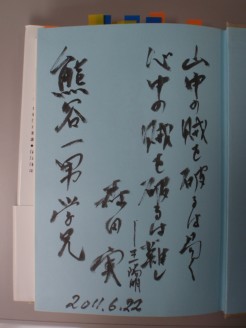 山中の賊を破るは易く
心中の賊を破るは難し
―王陽明
森田実
熊谷一男学兄
2011.6.22